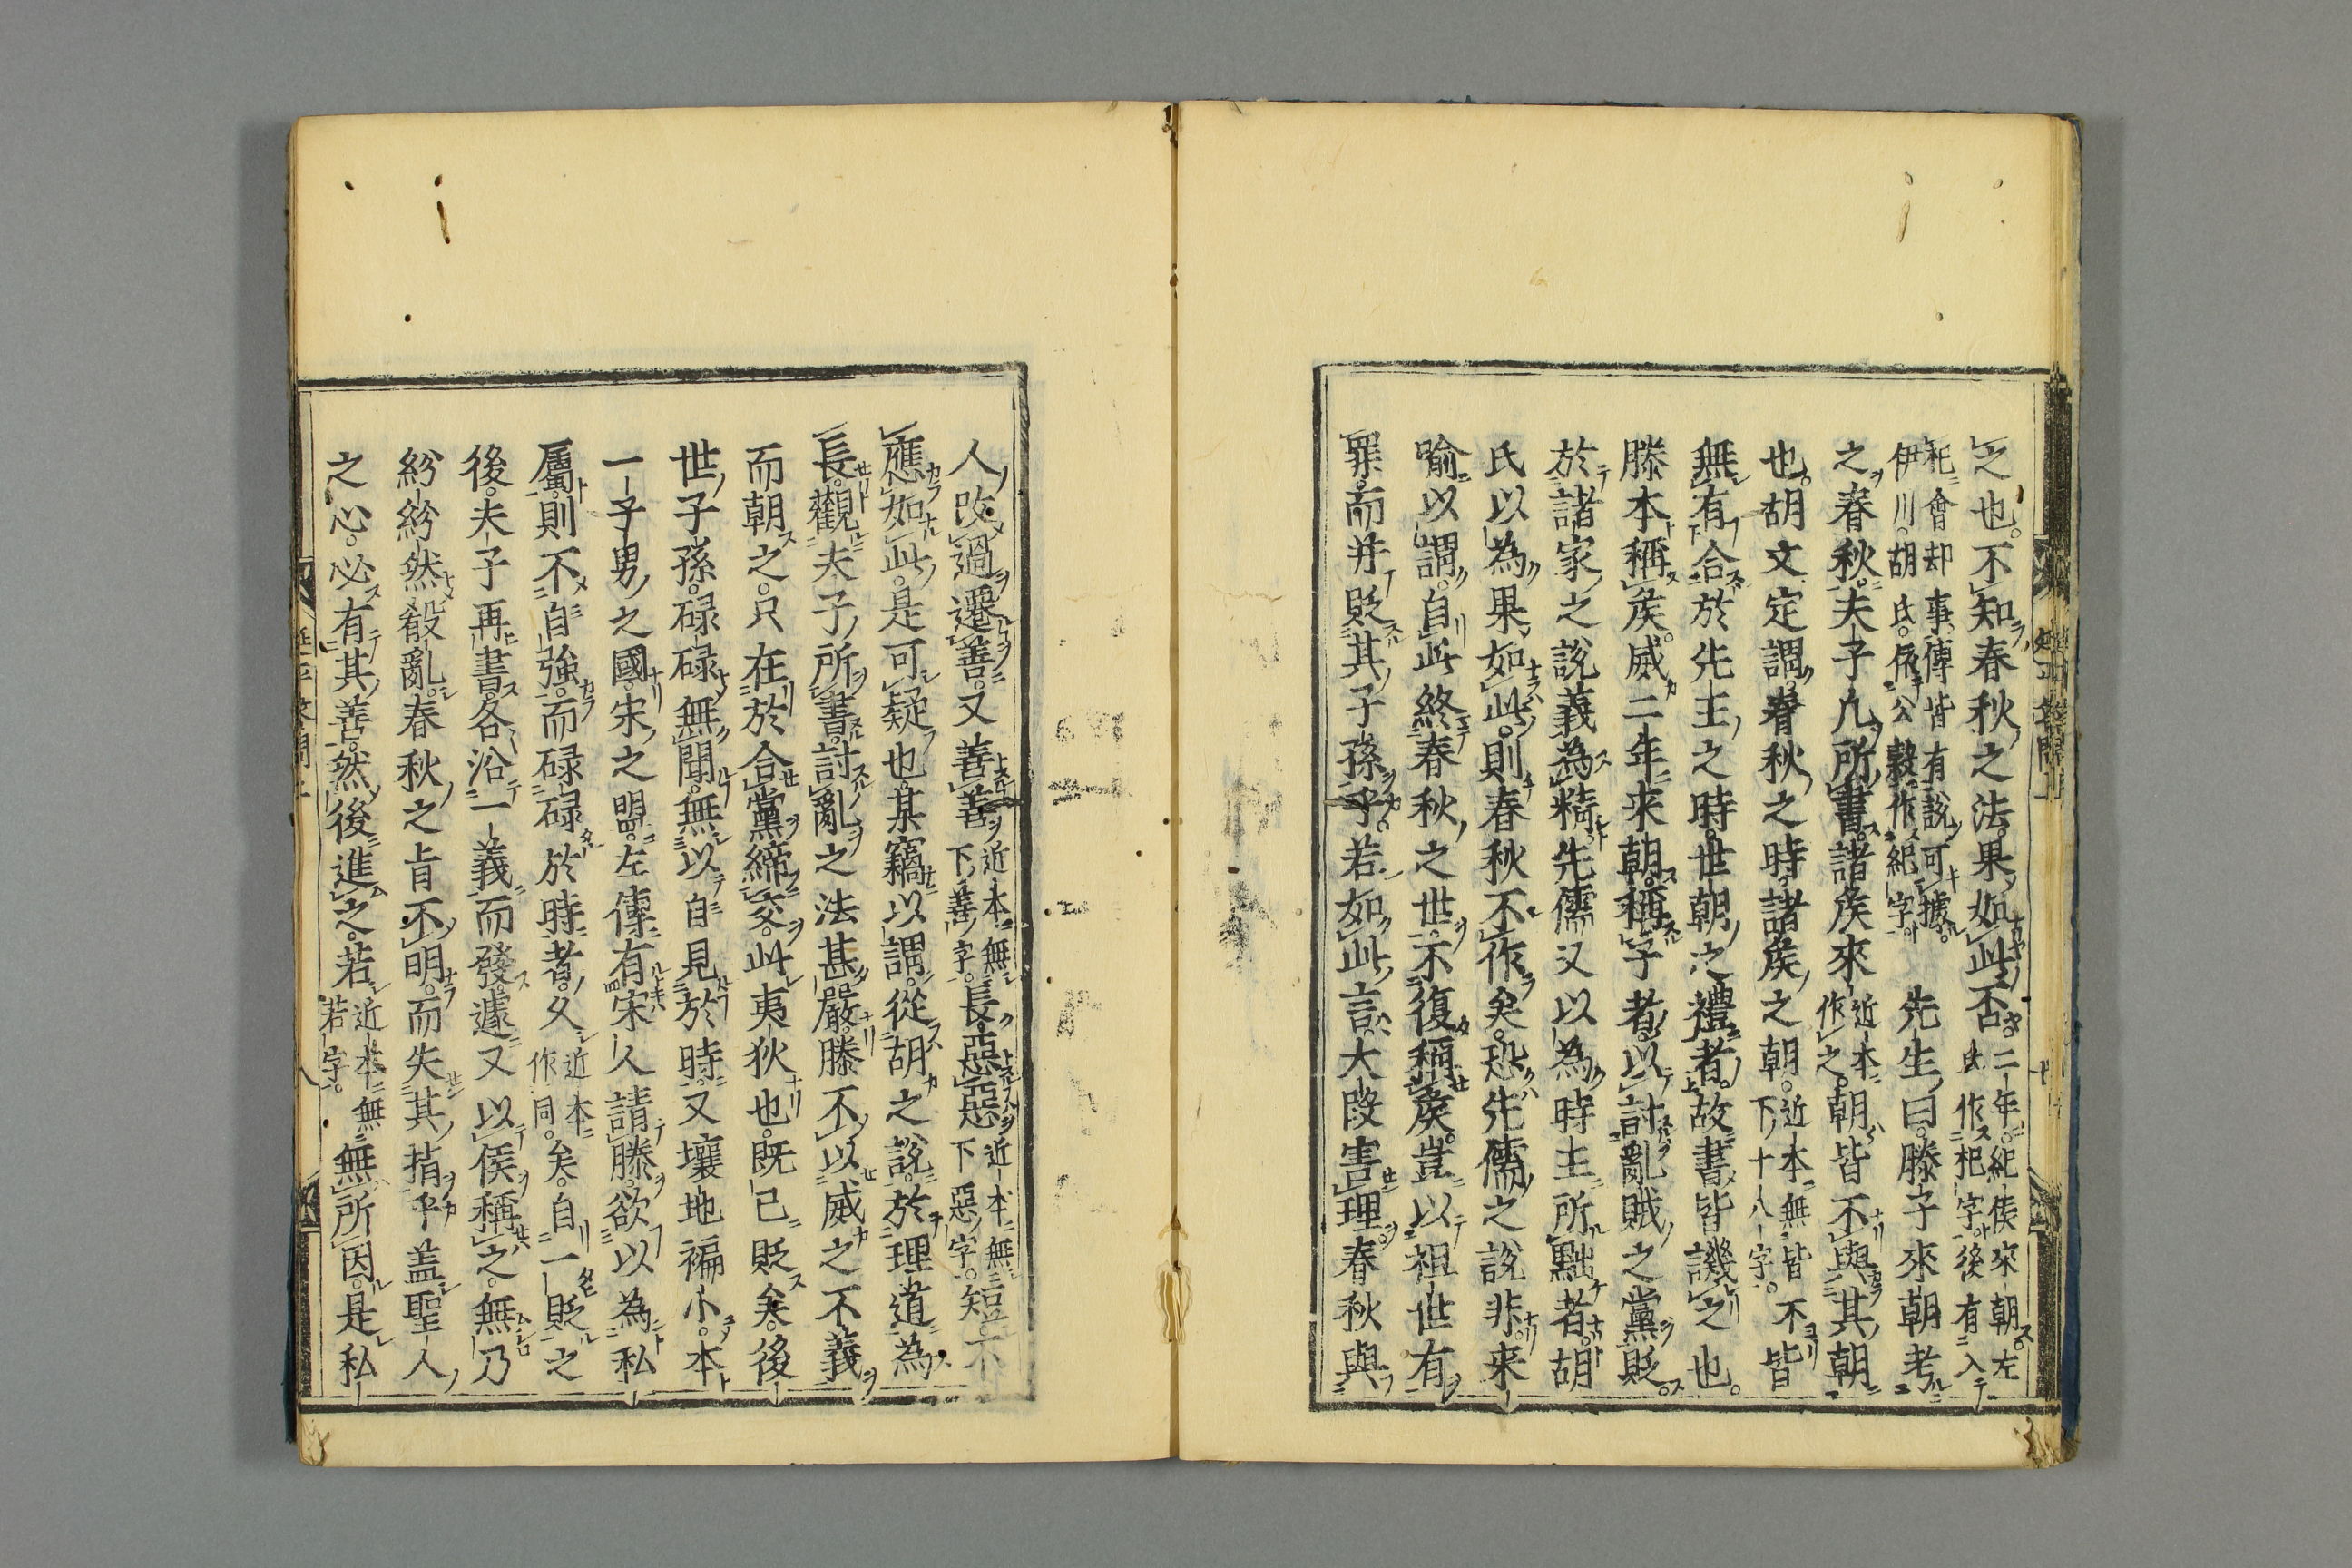 之也。不知春秋之法。果如此否。二年。紀侯來朝。左氏作杞字。後有入
杞會却事。傳皆有說可據。伊川。胡氏。依公穀。作紀字。先生曰。滕子來朝考
之春秋。夫子凡所書。諸侯來近本作之。朝。皆不與其朝
也。胡文定謂。春秋之時。諸侯之朝。近本無皆不皆下十八字。皆
無有合於先王之時。世朝之禮者。故書皆譏之也。
滕本稱侯。威二年來朝。稱字者。以討亂賊之黨貶。
於諸家之說義為精。先儒又以為時王所黜者。胡
氏以為果如此。則春秋不作矣。恐先儒之說非。来
喻以謂。自此終春秋之世。不復稱侯。豈以祖世有
罪。而并貶其子孫乎。若如此言。大段害理。春秋與
人改過遷善。又善善近本無下善字。長。惡惡近本無下惡字。短。不
應如此。是可疑也。某竊以謂。從胡之說。於理道為
長。觀夫子所書。討亂之法甚嚴。滕不以威之不義
而朝之。只在於合黨締交。此夷狄也。既已貶矣。後
世子孫。碌碌無聞。無以自見於時。又壤地褊小。本
一子男之國。宋之盟。左傳有宋人請滕。欲以為私
屬。則不自強。而碌碌於時者。久近本作同。矣。自一貶之
後。夫子再書。各沿一義而發。遽又以侯稱之。無乃
紛紛然殽亂。春秋之旨不明。而失其指乎。盖聖人
之心。必有其善。然後進之。若近本無若字。無所因。是私